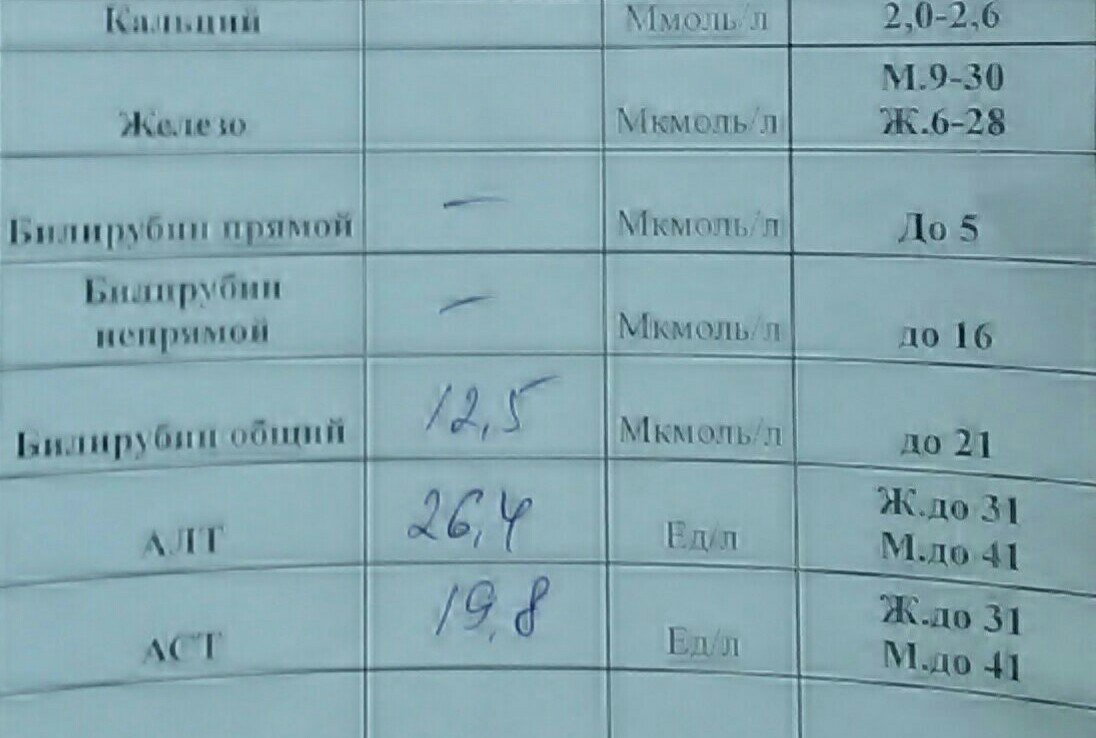 Кальций Ммоль/л 2,0-2,6
М.9-30
Железо Мкмоль/л Ж.6-28
Билирубин прямой — Мкмоль/л До 5
Билирубин
непрямой — Мкмоль/л до 16
Билирубин общий 12,5 Мкмоль/л до 21
Ж.до 31
АЛТ 26,4 Ед/л М.до 41
Ж.до 31
АСТ 19,8 Ед/л М.до 41